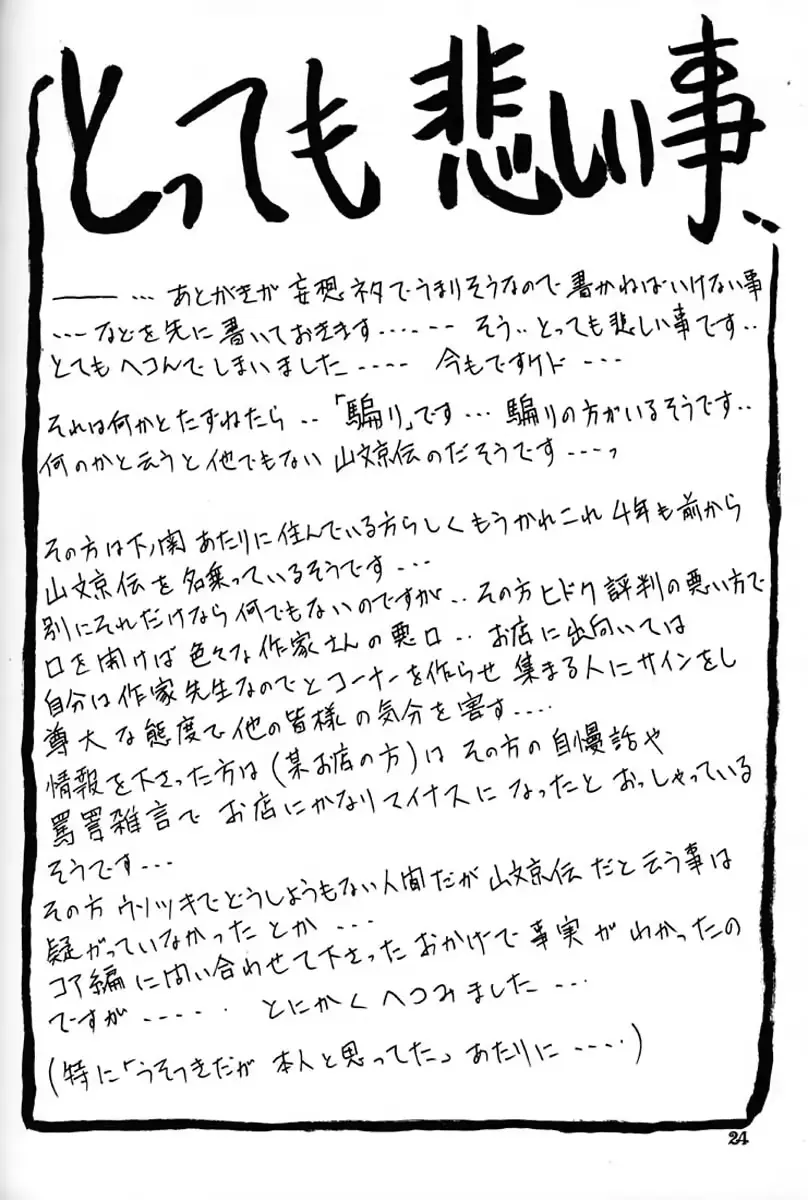 とっても悲しい事..
―― … あとがきが 妄想ネタでうまりそうなので 書かねばいけない事
…などを先に書いておきます…… そう.. とっても悲しい事です..
とてもヘコんでしまいました…… 今もですケド …
それは何かとたずねたら ..「騙り」です… 騙りの方がいるそうです..
何のかと云うと他でもない 山文京伝のだそうです……っ
その方は下ノ関あたりに住んでいる方らしくもうかれこれ 4年も前から
山文京伝を名乗っているそうです…
別にそれだけなら何でもないのですが.. その方ヒドク評判の悪い方で
口を開けば色々な作家さんの悪口.. お店に出向いては
自分は作家先生なのでとコーナーを作らせ 集まる人にサインをし
尊大な態度で他の皆様の気分を害す……
情報を下さった方は(某お店の方)は その方の自慢話や
罵詈雑言で お店にかなりマイナスに なったと おっしゃっている
そうです…
その方 ウソツキでどうしようもない人間だが 山文京伝 だと云う事は
疑がっていなかったとか …
コア編に問い合わせて下さった おかげで事実が わかったの
ですが…… とにかくへコみました …
(特に「うそつきだが 本人と思ってた」あたりに ……)
24